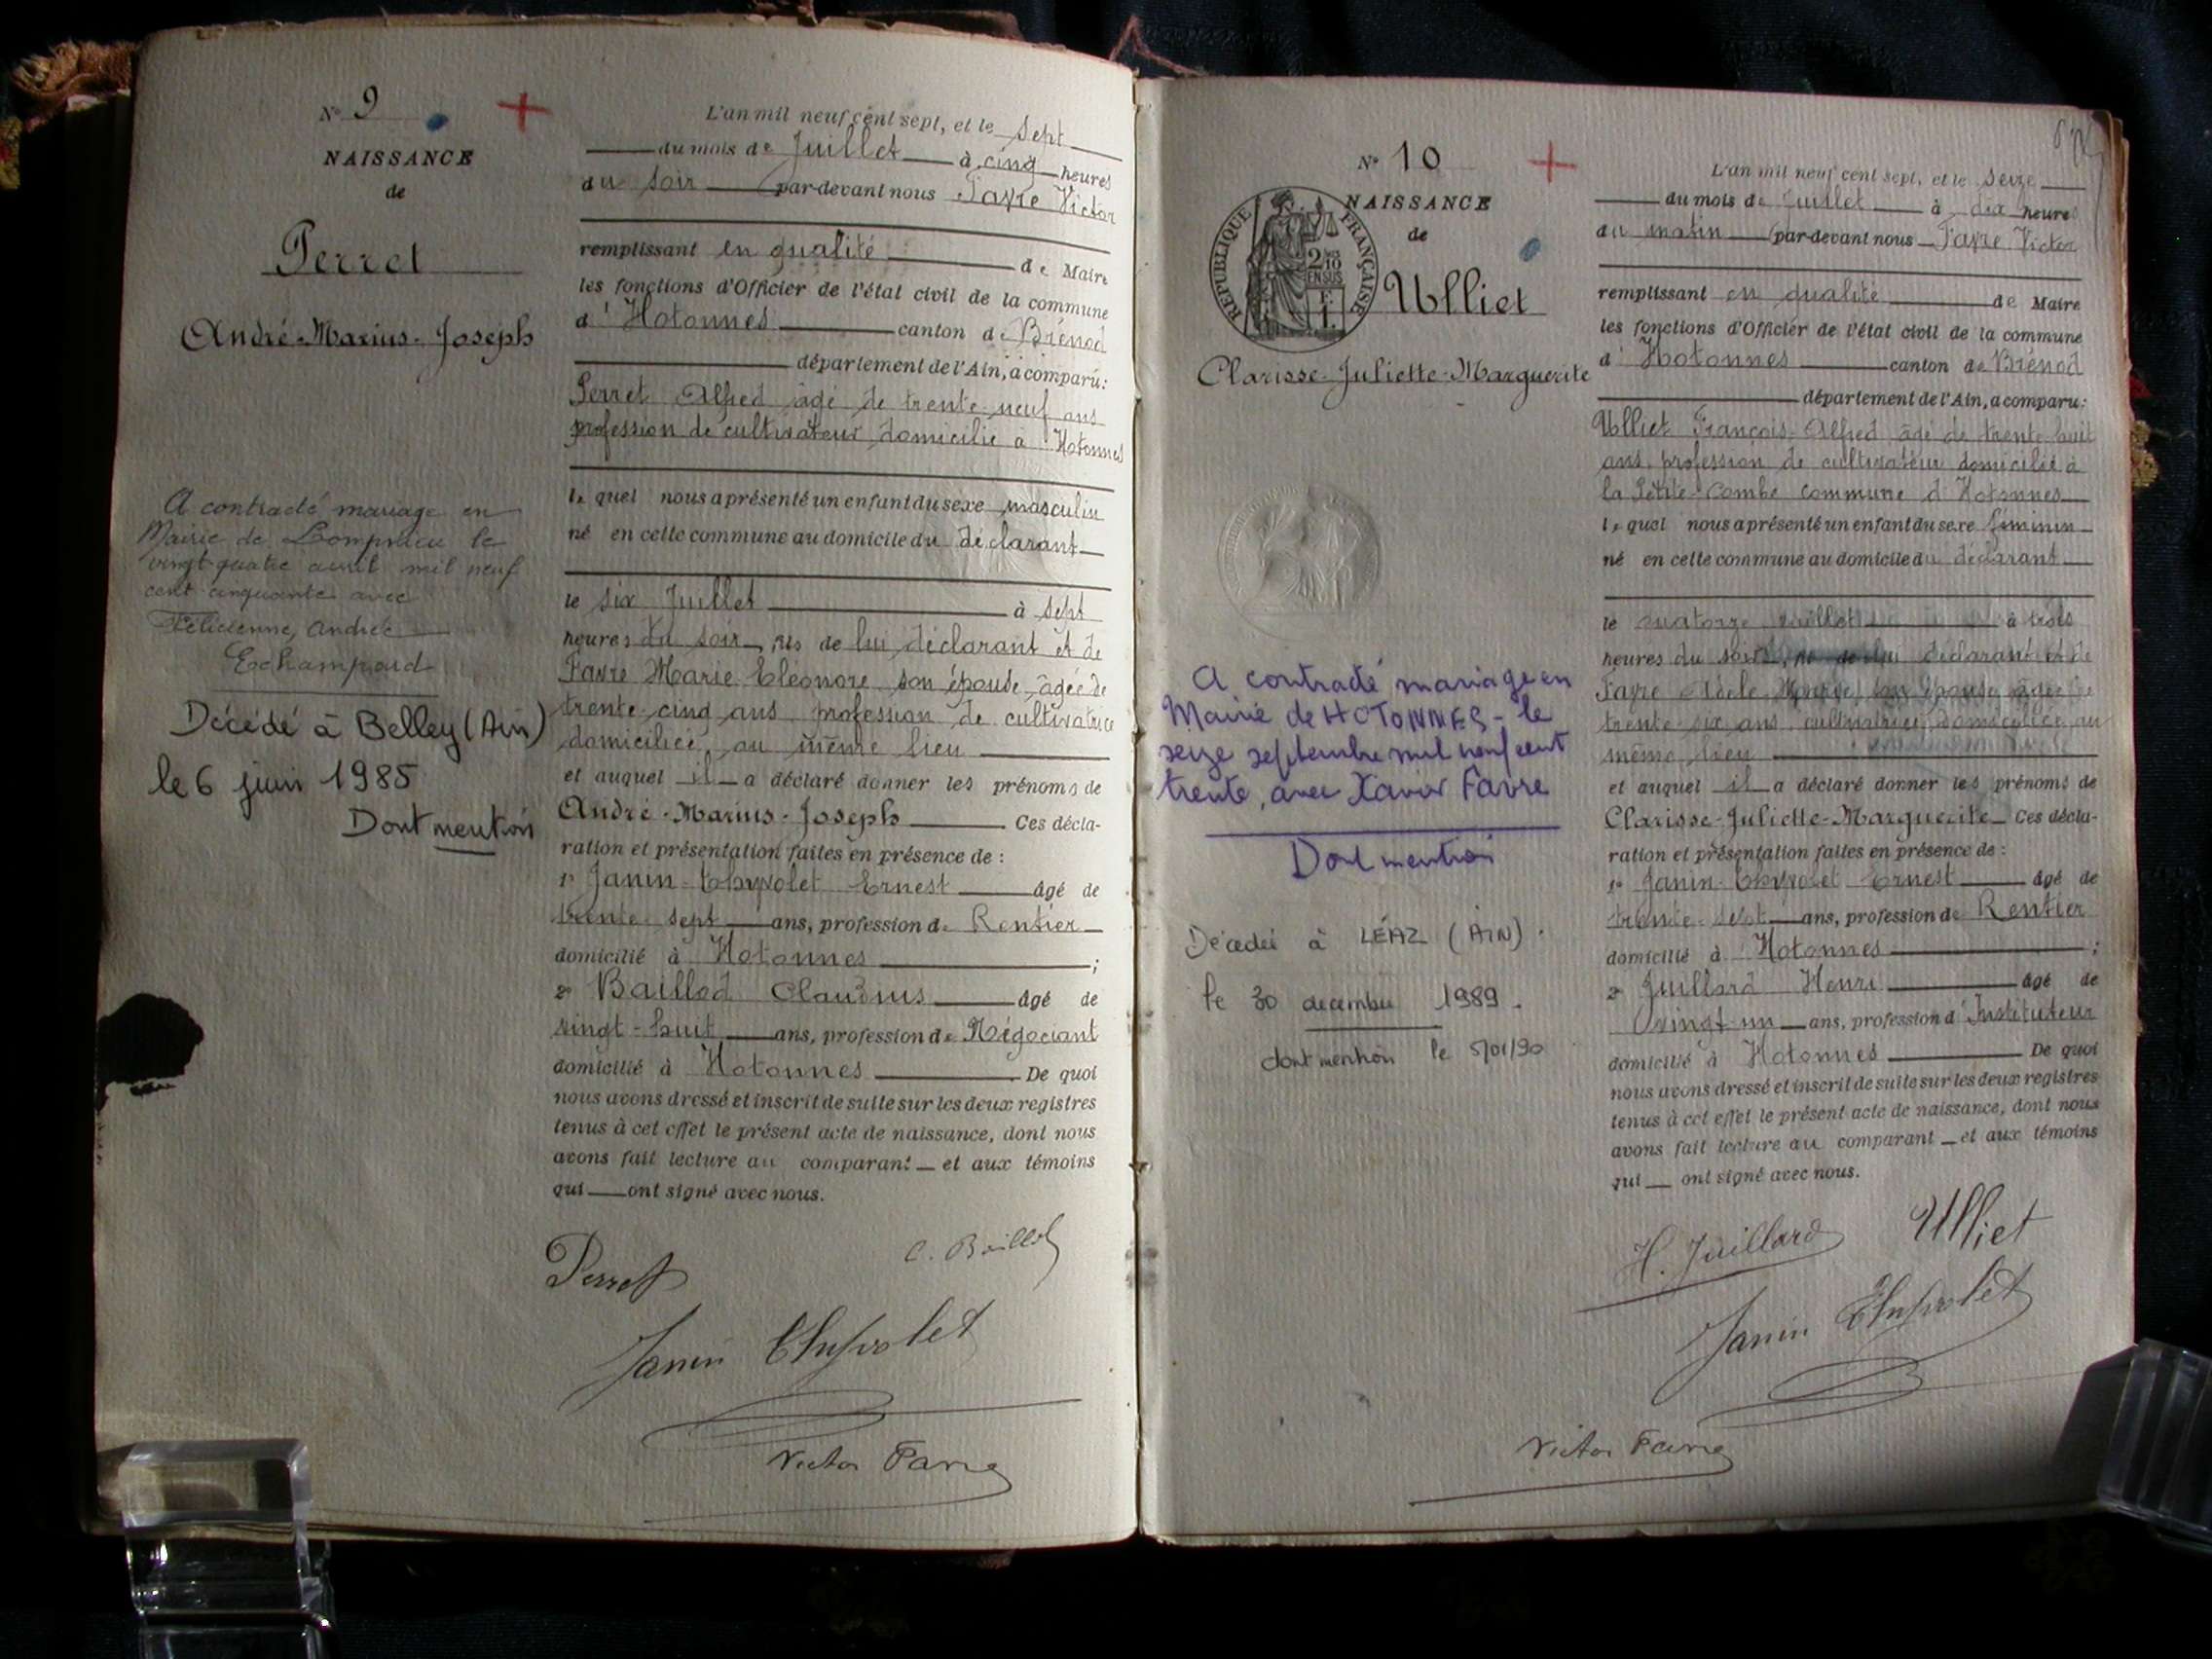 N° 9
NAISSANCE
de
Perret
André-Marius-Joseph
A contracté mariage en
Mairie de Lompnieu le
vingt quatre avril mil neuf
cent cinquante avec
Félicienne, Andrée
Echampard
Décédé à Belley (Ain)
le 6 juin 1985
Dont mention
L'an mil neuf cent sept, et le sept
du mois de Juillet à cinq heures
du soir par-devant nous Favre Victor
remplissant en qualité de Maire
les fonctions d'Officier de l'état civil de la commune
d' Hotonnes canton de Brénod
département de l'Ain, a comparu:
Perret Alfred âgé de trente-neuf ans
profession de cultivateur domicilié à Hotonnes
lequel nous a présenté un enfant du sexe masculin
né en cette commune au domicile du déclarant
le six Juillet à sept
heures du soir, fils de lui déclarant et de
Favre Marie Eléonore son épouse, âgée de
trente-cinq ans profession de cultivatrice
domiciliée, au même lieu
et auquel il a déclaré donner les prénoms de
André-Marius-Joseph Ces décla-
ration et présentation faites en présence de :
1° Janin-Thyvolet Ernest âgé de
trente-sept ans, profession de Rentier
domicilié à Hotonnes ;
2° Baillod Claudius âgé de
vingt-huit ans, profession de Négociant
domicilié à Hotonnes De quoi
nous avons dressé et inscrit de suite sur les deux registres
tenus à cet effet le présent acte de naissance, dont nous
avons fait lecture au comparant et aux témoins
qui ont signé avec nous.
Perret C. Baillod
Janin Thyvolet
Victor Favre
N° 10
NAISSANCE
de
REPUBLIQUE FRANÇAISE
2/10
EN SUS
Ulliet
Clarisse-Juliette-Marguerite
A contracté mariage en
Mairie de HOTONNES - le
seize septembre mil neuf cent
trente, avec Xavier Favre
Dont mention
Décédée à LÉAZ (AIN).
le 30 décembre 1989.
dont mention le 5/01/90
L'an mil neuf cent sept, et le seize
du mois de Juillet à dix heures
du matin par-devant nous Favre Victor
remplissant en qualité de Maire
les fonctions d'Officier de l'état civil de la commune
d' Hotonnes canton de Brénod
département de l'Ain, a comparu:
Ulliet François-Alfred âgé de trente-huit
ans profession de cultivateur domicilié à
la Petite-Combe commune d'Hotonnes
lequel nous a présenté un enfant du sexe féminin
né en cette commune au domicile du déclarant
le quatorze juillet à trois
heures du soir, de lui déclarant et de
Favre Adèle son épouse âgée de
trente-six ans cultivatrice, domiciliée au
même lieu
et auquel il a déclaré donner les prénoms de
Clarisse-Juliette-Marguerite Ces décla-
ration et présentation faites en présence de :
1° Janin-Thyvolet Ernest âgé de
trente-sept ans, profession de Rentier
domicilié à Hotonnes ;
2° Juillard Henri âgé de
vingt-un ans, profession d'Instituteur
domicilié à Hotonnes De quoi
nous avons dressé et inscrit de suite sur les deux registres
tenus à cet effet le présent acte de naissance, dont nous
avons fait lecture au comparant et aux témoins
qui ont signé avec nous.
H. Juillard Ulliet
Janin Thyvolet
Victor Favre